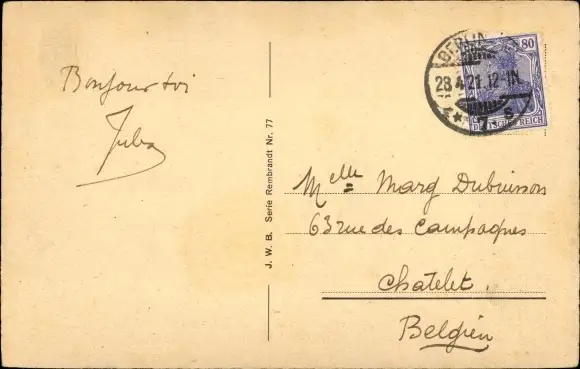 Bonjour toi
Jules
J. W. B. Serie Rembrandt Nr. 77
BERLIN
28.4.21.12-1N.
* 7. s
80
DEUTSCHES REICH
Melle Marg Dubuisson
63 rue des Campagnes
Chatelet.
Belgien